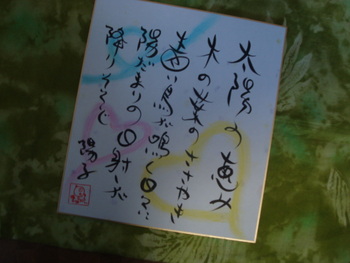 太陽の恵み
木の葉のささやき
に鳥が鳴く日々に
陽だまりの日射しが
降りそそぐ
陽子